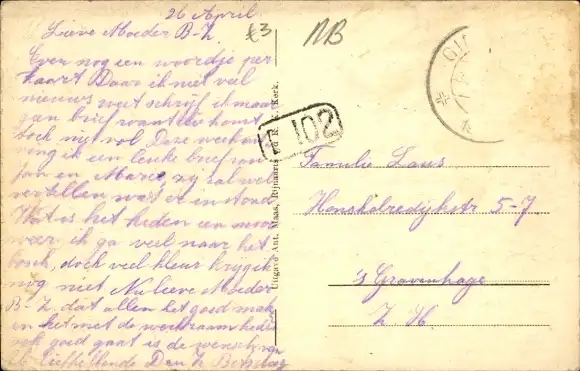 26 April
Lieve Moeder B-Z.
Even nog een woordje per
kaart Daar ik niet veel
nieuws weet schrijf ik maar
geen brief want die komt
toch niet vol Deze week ont
ving ik een leuke brief van
Jan en Marie, zij zal wel
vertellen wat er in stond
Wat is het heden een mooi
weer ik ga veel naar het
bosch, doch veel kleur krijg ik
nog niet Nu lieve Moeder
B-Z dat allen het goed mak
en het met de werkzaamheden
ook goed gaat is de wensch van
Uw liefhebbende Dan Z
£3
NB
102
Uitgave Ant. Maas, Rijnaarts bd R. K. Kerk.
Familie Laus
Honsholredijkstr 5-7
's Gravenhage
Z. H.